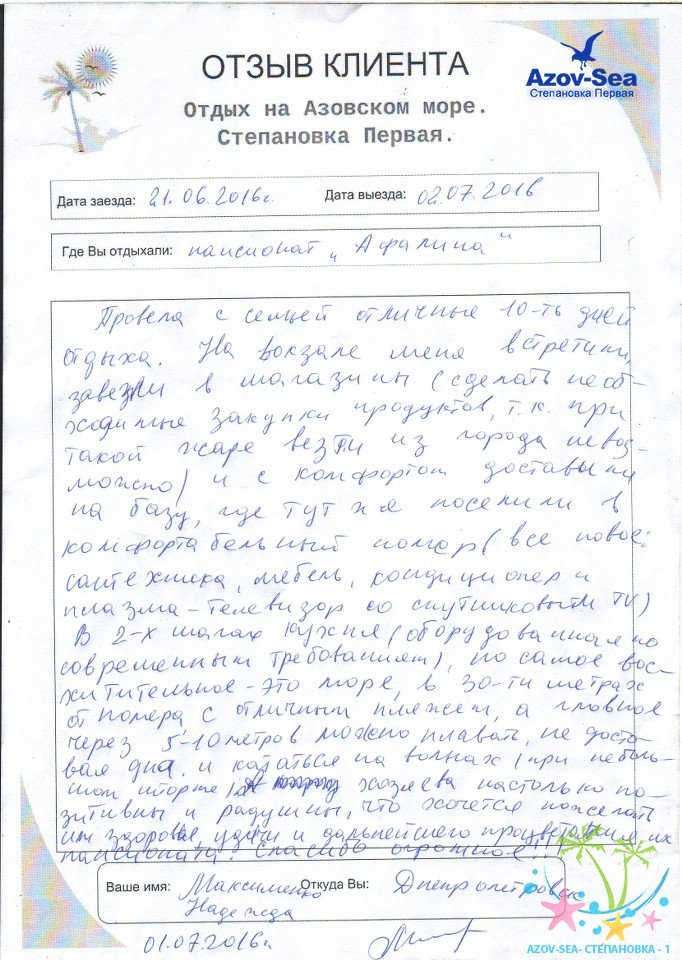 ОТЗЫВ КЛИЕНТА
Azov-Sea
Степановка Первая
Отдых на Азовском море.
Степановка Первая.
Дата заезда: 21.06.2016г. Дата выезда: 02.07.2016
Где Вы отдыхали: пансионат „Афалина“
Провела с семьей отличные 10-ть дней
отдыха. На вокзале меня встретили,
завезли в магазины (сделать необ-
ходимые закупки продуктов, т.к. при
такой жаре везти из города невоз-
можно) и с комфортом доставили
на базу, где тут же поселили в
комфортабельный номер (все новое:
сантехника, мебель, кондиционер и
плазма-телевизор со спутниковым TV)
В 2-х шагах кухня (оборудованная по
современным требованиям), но самое вос-
хитительное - это море, в 30-ти метрах
от номера с отличным пляжем, а главное
через 5-10 метров можно плавать, не доста-
вая дна, и кататься на волнах (при неболь-
шом шторме) хозяева настолько по-
зитивны и радушны, что хочется пожелать
им здоровья, удачи и дальнейшего процветания их
пансионата! Спасибо огромное!!
Ваше имя: Максименко Откуда Вы: Днепропетровск
Надежда
01.07.2016г.
AZOV-SEA- СТЕПАНОВКА - 1